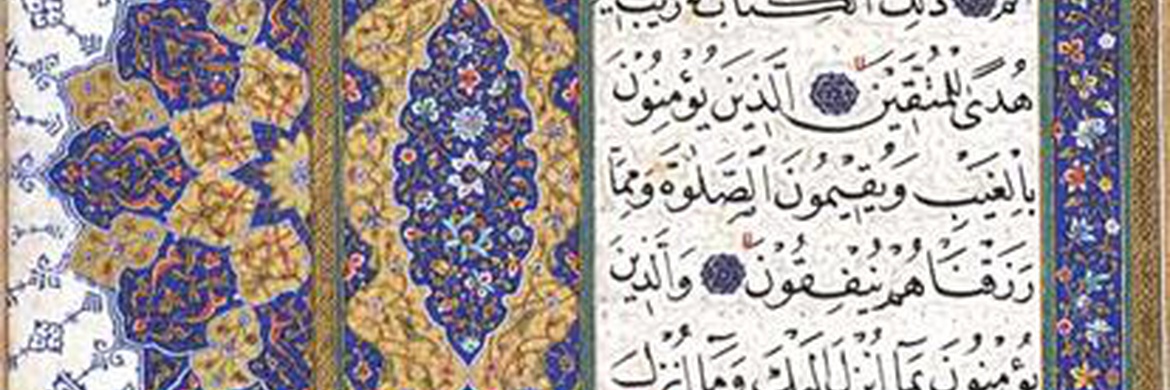 الم ۝ ذلك الكتاب ريب
هُدًى لِلْمُتَّقِينَ ۝ الَّذِينَ يُؤْمِنُونَ
بِالْغَيْبِ وَيُقِيمُونَ الصَّلٰوةَ وَمِمَّا
رَزَقْنَاهُمْ يُنْفِقُونَ ۝ وَالَّذِينَ
يُؤْمِنُونَ بِمَا أُنْزِلَ إِلَيْكَ وَمَا أُنْزِلَ